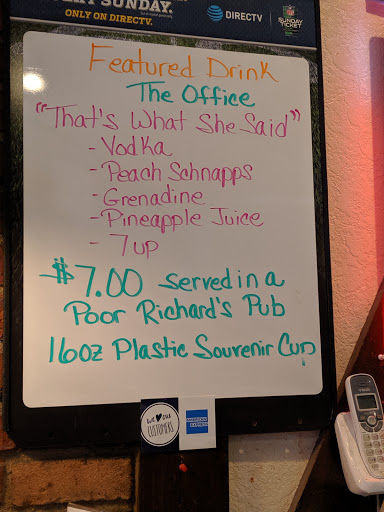 SUNDAY.
ONLY ON DIRECTV.
AT&T DIRECTV
NFL
SUNDAY
TICKET
Featured Drink
The Office
"That's What She Said"
- Vodka
- Peach Schnapps
- Grenadine
- Pineapple Juice
- 7up
$7.00 served in a
Poor Richard's Pub
16oz Plastic Souvenir Cup
we ♥ our
CUSTOMERS
AMERICAN
EXPRESS
vtech